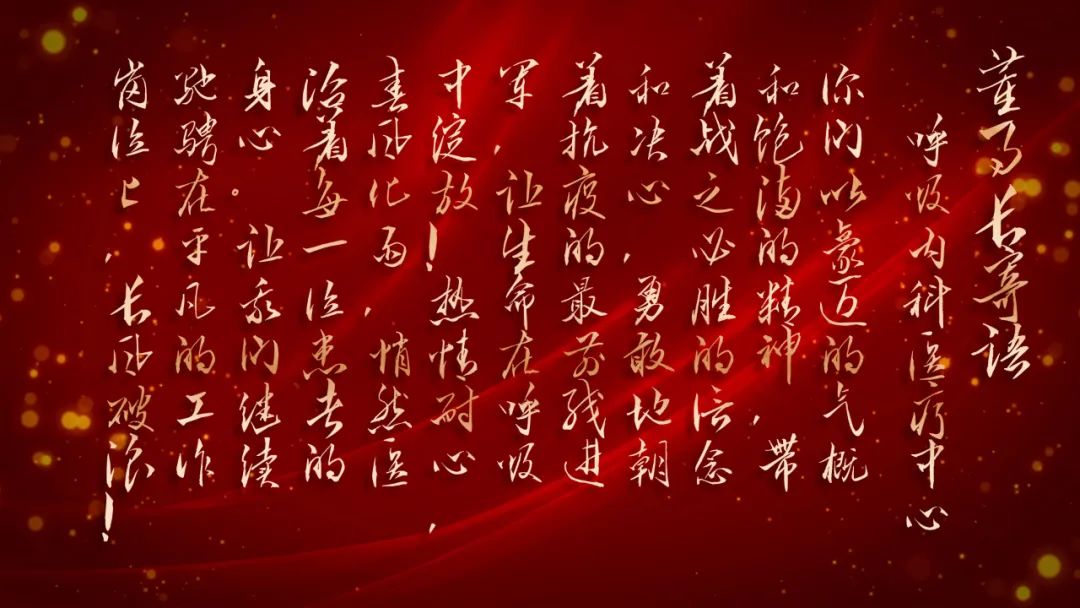 董事长寄语
呼吸内科医疗中心
你们以豪迈的气概
和饱满的精神，带
着战之必胜的信念
和决心，勇敢地朝
着抗疫的最前线进
军，让生命在呼吸
中绽放！热情耐心，
春风化雨，悄然医
治着每一位患者的
身心。让我们继续
驰骋在平凡的工作
岗位上，长风破浪！